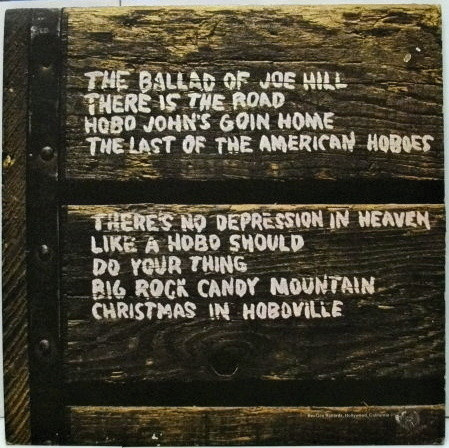 THE BALLAD OF JOE HILL
THERE IS THE ROAD
HOBO JOHN'S GOIN HOME
THE LAST OF THE AMERICAN HOBOES
THERE'S NO DEPRESSION IN HEAVEN
LIKE A HOBO SHOULD
DO YOUR THING
BIG ROCK CANDY MOUNTAIN
CHRISTMAS IN HOBOVILLE
Records, Hollywood, California